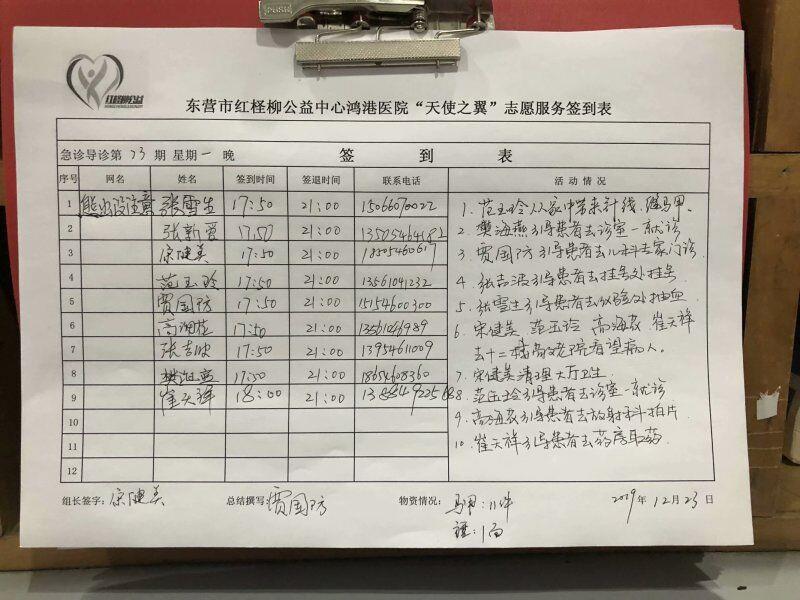 红柽柳公益
东营市红柽柳公益中心鸿港医院“天使之翼”志愿服务签到表
急诊导诊第 73 期 星期一 晚 签 到 表
序号 网名 姓名 签到时间 签退时间 联系电话 活动情况
1 熊出没注意 张雪生 17:50 21:00 15066070022
2 张新爱 17:50 21:00 13505464182
3 宋健美 17:50 21:00 18505460617
4 范玉玲 17:50 21:00 13561041232
5 贾国防 17:50 21:00 15154600300
6 17:50 21:00
7 张吉波 17:50 21:00 13954611009
8 樊海燕 17:50 21:00 18654608360
9 崔天祥 18:00 21:00
10
11
12
1. 范玉玲从家中带来针线,缝马甲.
2. 樊海燕引导患者去诊室一就诊
3. 贾国防引导患者去儿科专家门诊
4. 张吉波引导患者去挂号处挂号
5. 张雪生引导患者去化验处抽血
6. 宋健美 范玉玲 高海 崔天祥
去十二楼 院看望病人。
7. 宋健美清理大厅卫生
8. 范玉玲引导患者去诊室一就诊
9. 高海 引导患者去放射科拍片
10. 崔天祥引导患者去药房取药
组长签字: 宋健美 总结撰写: 贾国防 物资情况: 马甲:11件
旗:1面
2019年12月23日